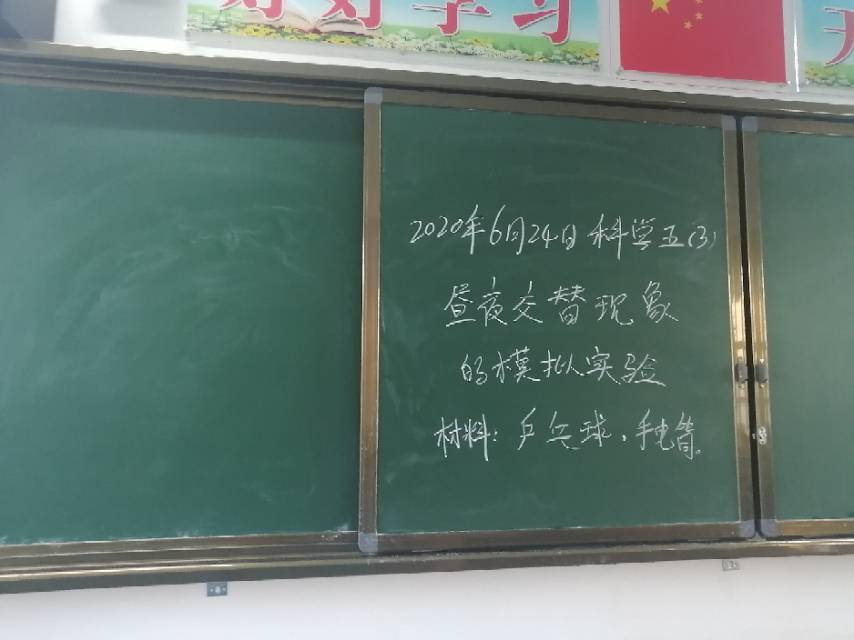 好好学习
天
2020年6月24日 科学五(3)
昼夜交替现象
的模拟实验
材料：乒乓球，手电筒。